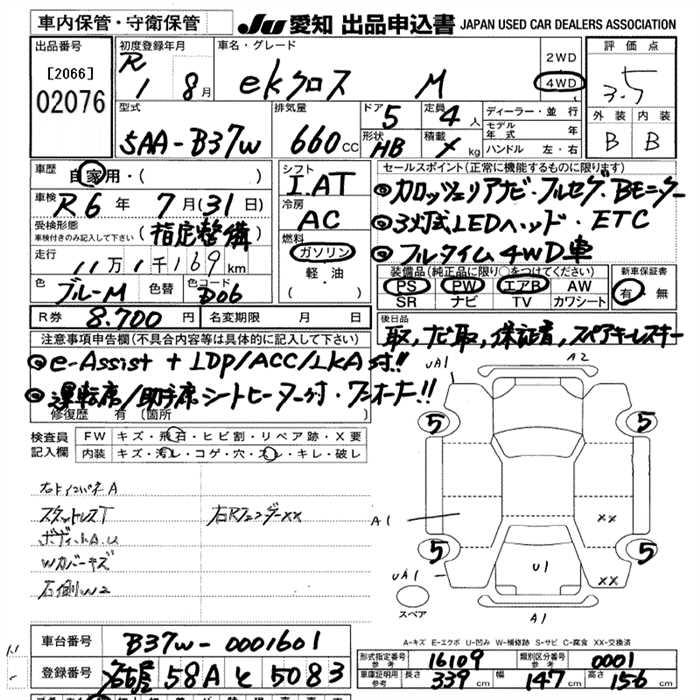 車内保管・守衛保管
JU 愛知 出品申込書 JAPAN USED CAR DEALERS ASSOCIATION
出品番号
[2066]
02076
初度登録年月
R 1 8月
車名・グレード
ekクロス M
2WD
4WD
評価点
3.5
外装 内装
B B
型式
5AA-B37W
排気量
660cc
ドア 5
定員 4人
形状 HB
積載 kg
ディーラー・並行
モデル年式 年
ハンドル 左・右
車歴
自家用・( )
車検
R6年 7月(31日)
受検形態
車検付きのみ記入して下さい
(指定整備)
走行
11万1千169km
色
ブルーM
色替
色コード
D06
R券 8.700円
名変期限 月 日
シフト
I.AT
冷房
AC
燃料
ガソリン
軽・油
( )
セールスポイント(正常に機能するものに限ります)
◎カロッツェリアナビ・フルセグ・Bモニター
◎3灯式LEDヘッド・ETC
◎フルタイム4WD車
装備品(純正品に限り○をつけてください)
PS PW エアB AW
SR ナビ TV カワシート
新車保証書
有・無
後日品
取,ナビ取,保証書,スペアキーレスキー
注意事項申告欄(不具合内容等は具体的に記入して下さい)
◎e-Assist+LDP/ACC/LKA付!!
◎運転席/助手席シートヒーター付・ワンオーナー!!
修復歴 有(箇所 )
検査員記入欄
FW キズ・飛石・ヒビ割・リペア跡・X要
内装 キズ・汚レ・コゲ・穴・スレ・キレ・破レ
スタットレスT
右Rフェンダーxx
Wカバーキズ
右側W2
UA1
A2
5
5
5
5
A1
xx
xx
U1
UA1
A1
スペア
A-キズ E-エクボ U-凹み W-補修跡 S-サビ C-腐食 XX-交換済
車台番号
B37W-0001601
登録番号
名古屋 58A と 5083
形式指定番号 参考 16109
類別区分番号 参考 0001
車庫証明用 参考
長さ 339cm
幅 147cm
高さ 156cm